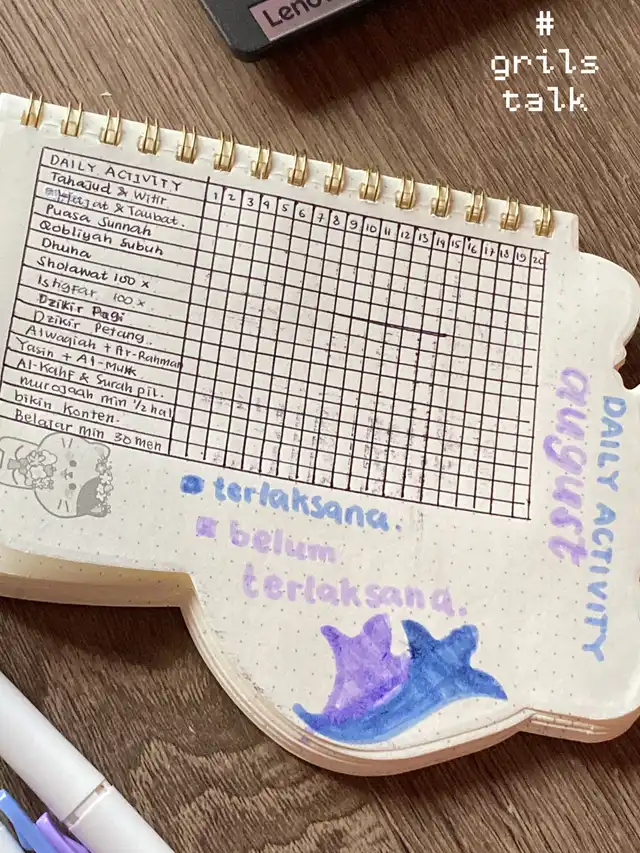 Leno
#
grils
talk
DAILY ACTIVITY 1 2 3 4 5 6 7 8 9 10 11 12 13 14 15 16 17 18 19 20
Tahajud & Witir
& Taubat.
Puasa Sunnah
Qobliyah Subuh
Dhuha
Sholawat 100 x
Istigfar 100 x
Dzikir Pagi
Dzikir Petang
Alwaqiah + Ar-Rahman
Yasin + Al-Mulk
Al-Kahf & Surah pil.
murojaah min 1/2 hal
bikin Konten.
Belajar min 30 men
terlaksana.
belum
terlaksana.
DAILY ACTIVITY
august